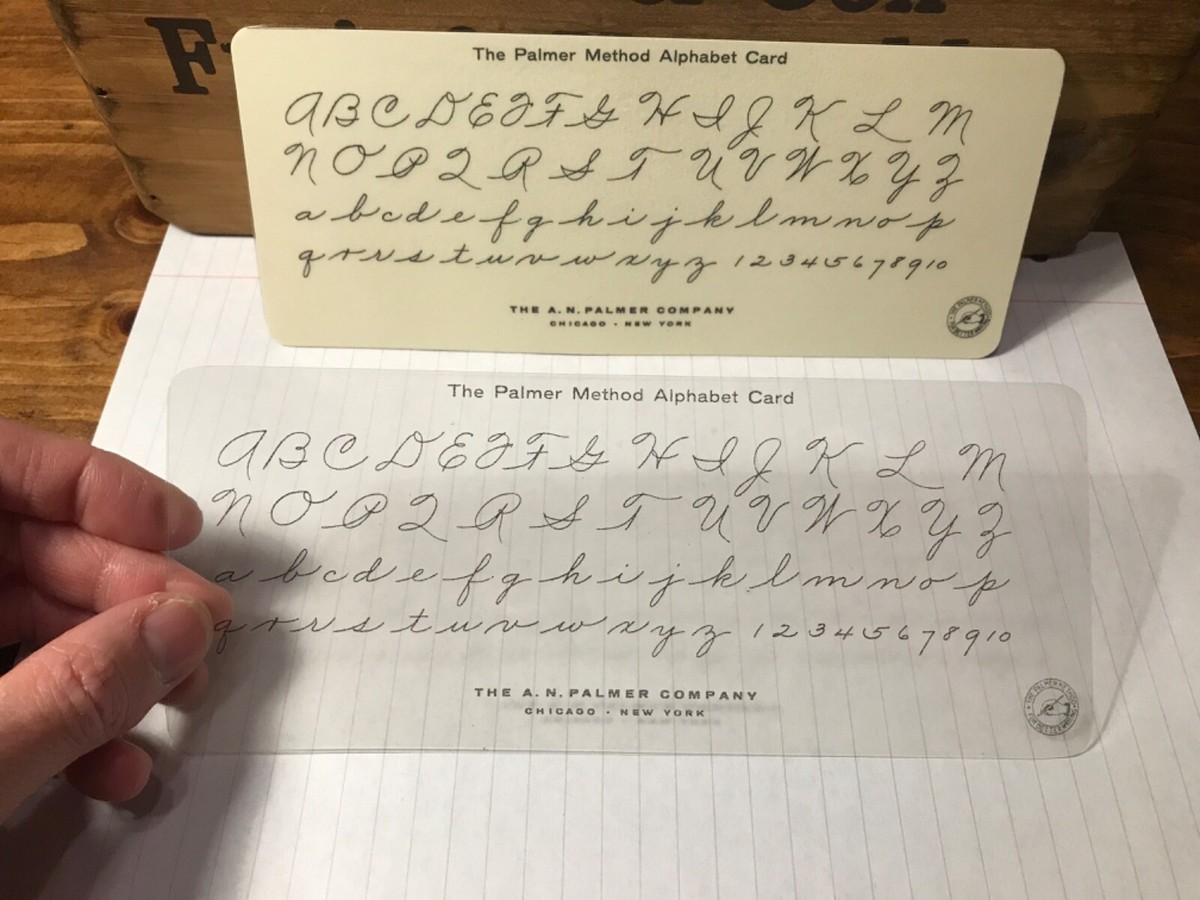 The Palmer Method Alphabet Card
A B C D E F F G H I J K L M
N O P Q R S T U V W X Y Z
a b c d e f g h i j k l m n o p
q r r s t u v w x y z 1 2 3 4 5 6 7 8 9 10
THE A. N. PALMER COMPANY
CHICAGO - NEW YORK
The Palmer Method Alphabet Card
A B C D E F F G H I J K L M
N O P Q R S T U V W X Y Z
a b c d e f g h i j k l m n o p
q r r s t u v w x y z 1 2 3 4 5 6 7 8 9 10
THE A. N. PALMER COMPANY
CHICAGO - NEW YORK